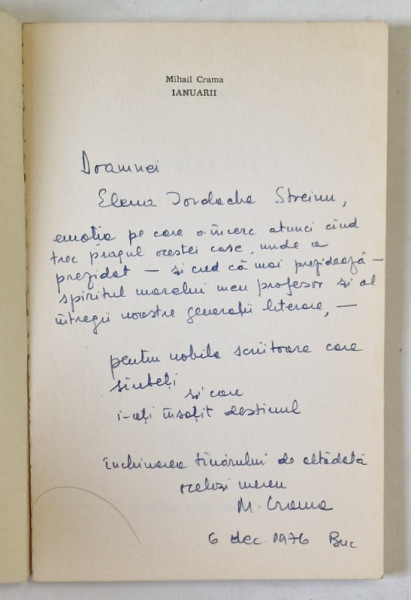 Mihail Crama
IANUARII
Doamnei
Elena Iordache Streinu,
emoția pe care o încerc atunci cînd
trec pragul acestei case, unde a
prezidat — și cred că mai prezidează —
spiritul marelui meu profesor și al
întregii noastre generații literare, —
pentru nobila scriitoare care
sînteți
și care
i-ați însoțit destinul
închinarea tînărului de altădată
același mereu
M. Crama
6 dec 1976 Buc